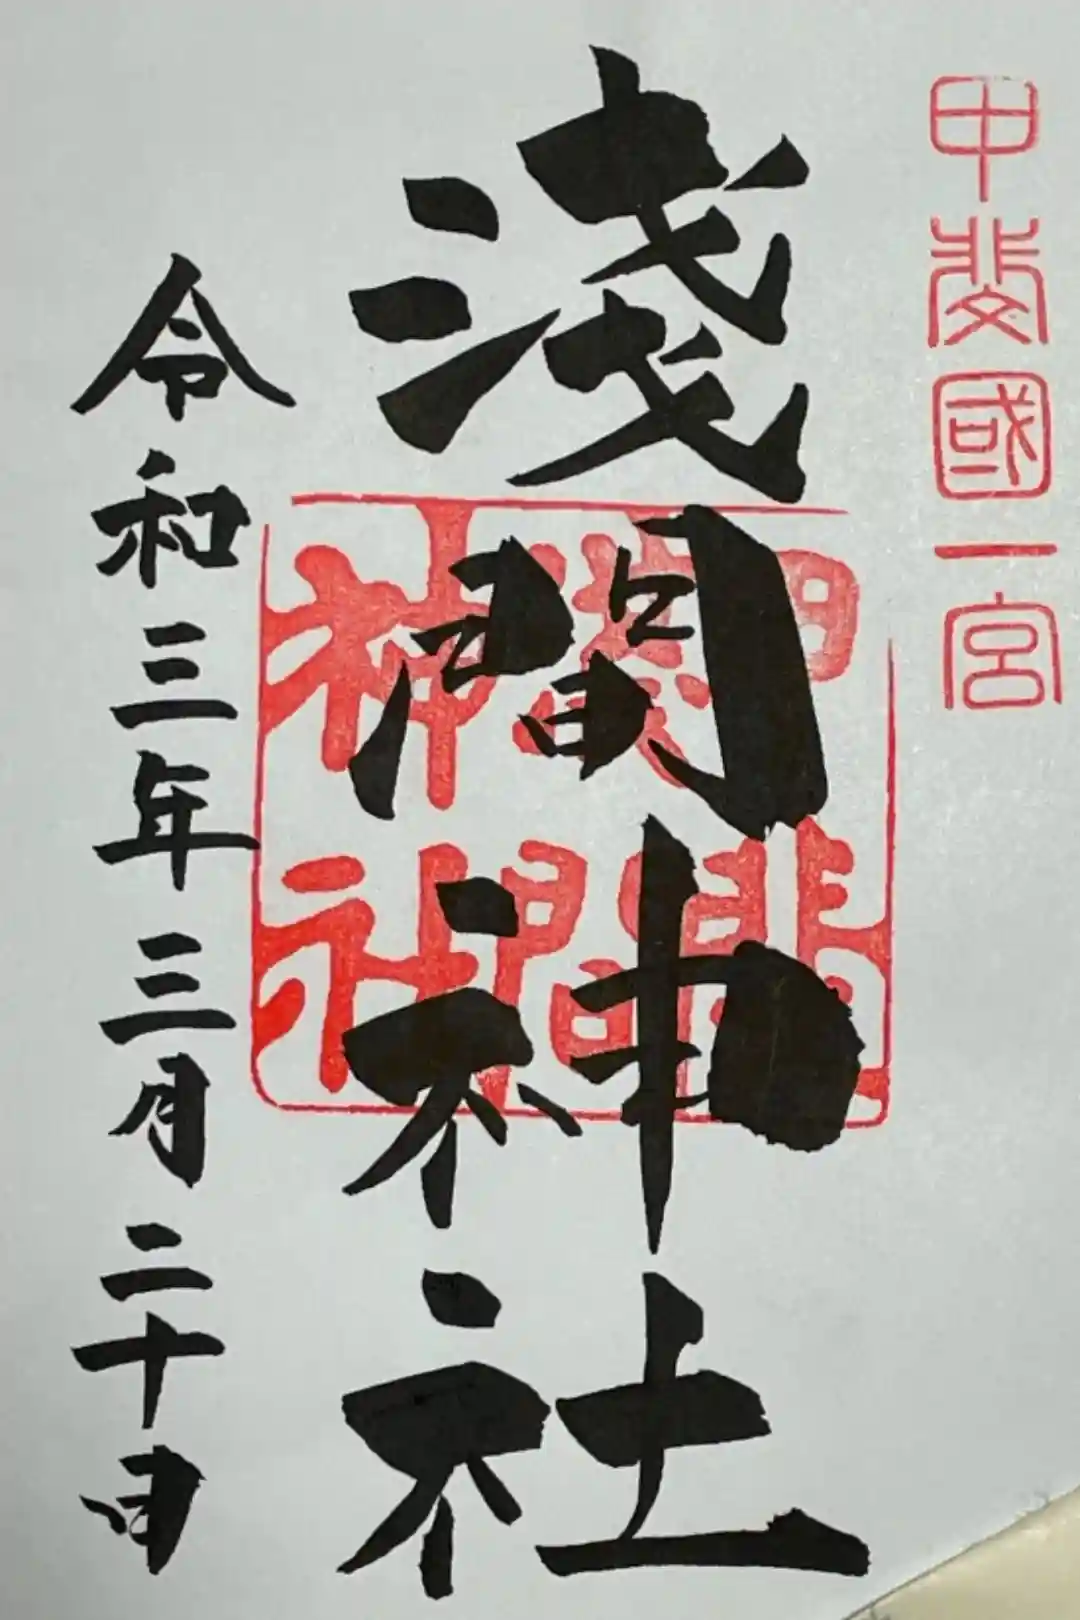 甲斐國一宮
淺間神社
令和三年三月二十日